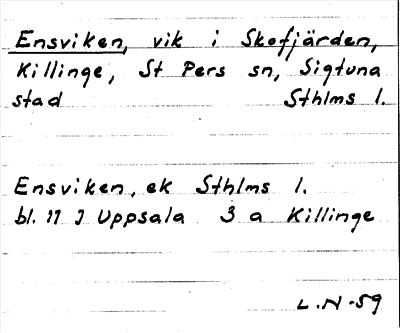 Ensviken, vik i Skofjärden,
Killinge, St Pers sn, Sigtuna
stad Sthlms l.
Ensviken, ek Sthlms l.
bl. 11 I Uppsala 3 a Killinge
L.N-59